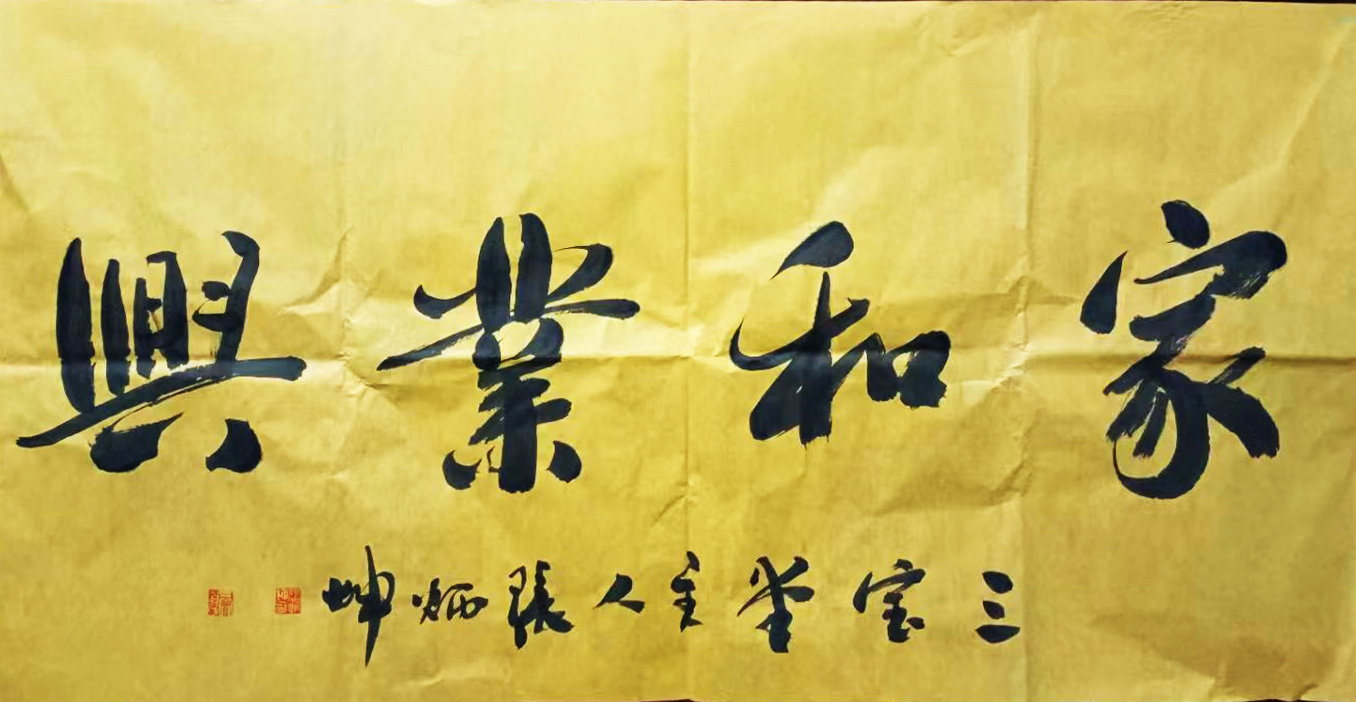 家和業興
三宝堂主人張炳坤